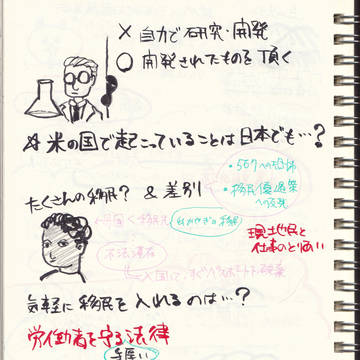 × 自力で研究・開発
○ 開発されたものを頂く
米の国で起こっていることは日本でも…?
・567への恐怖
・移民優遇策
への反発
たくさんの移民? & 差別
現土地民と
仕事のとりあい
不法滞在
気軽に移民を入れるのは…?
労働者を守る法律
手厚い